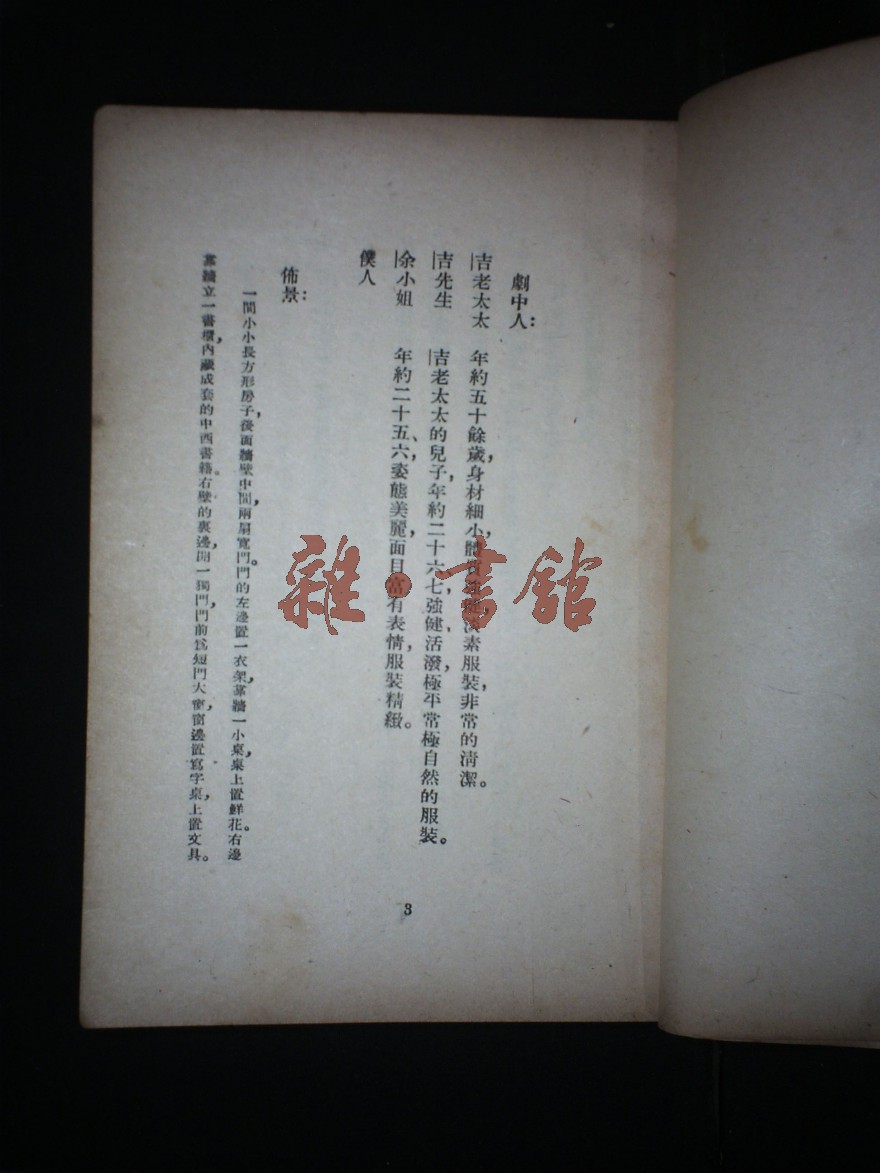 劇中人：
吉老太太　年約五十餘歲，身材細小，體質強健，淡素服裝，非常的清潔。
吉先生　吉老太太的兒子，年約二十六七，強健，活潑，極平常極自然的服裝。
余小姐　年約二十五、六，姿態美麗，面目富有表情，服裝精緻。
僕人
佈景：
一間小小長方形房子，後面牆壁中間，兩扇寬門。門的左邊置一衣架，靠牆一小桌，桌上置鮮花。右邊
靠牆立一書櫃，內藏成套的中西書籍。右壁的裏邊，開一獨門，門前爲短門大窗，窗邊置寫字桌，桌上置文具。
3
雜·書館